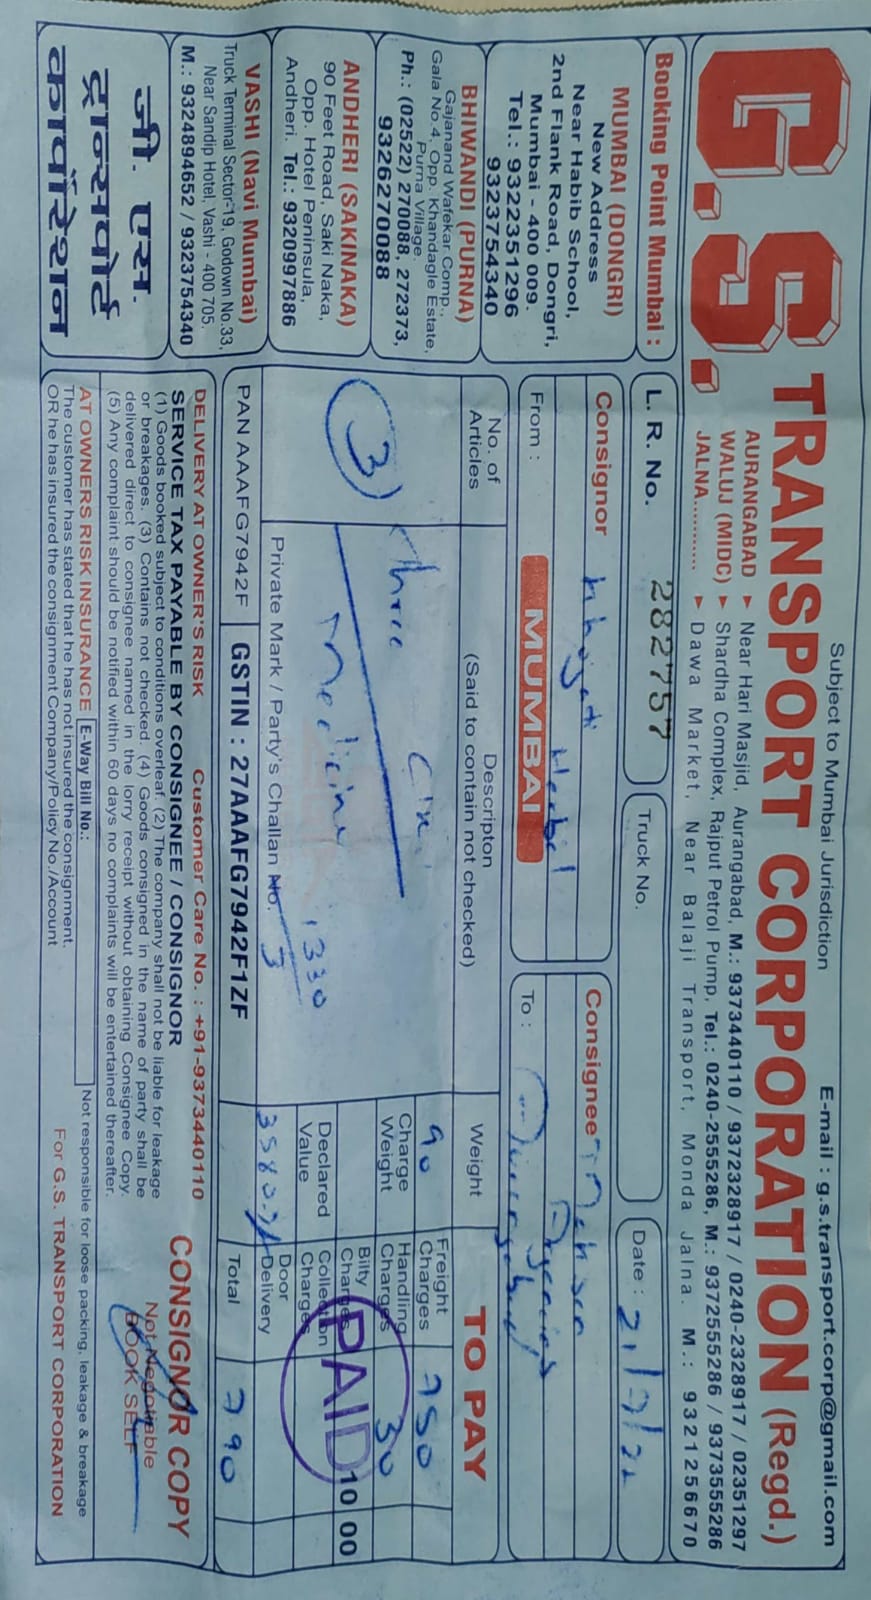 Subject to Mumbai Jurisdiction
E-mail : g.s.transport.corp@gmail.com
G.S. TRANSPORT CORPORATION (Regd.)
AURANGABAD ► Near Hari Masjid, Aurangabad, M.: 9373440110 / 9372328917 / 0240-2328917 / 02351297
WALUJ (MIDC) ► Shardha Complex, Rajput Petrol Pump, Tel.: 0240-2555286, M.: 9372555286 / 9373555286
JALNA........... ► Dawa Market, Near Balaji Transport, Monda Jalna. M.: 9321256670
Booking Point Mumbai :
MUMBAI (DONGRI)
New Address
Near Habib School,
2nd Flank Road, Dongri,
Mumbai - 400 009.
Tel.: 9322351296
9323754340
BHIWANDI (PURNA)
Gajanand Wafekar Comp.,
Gala No.4, Opp. Khandagle Estate,
Purna Village,
Ph.: (02522) 270088, 272373,
9326270088
ANDHERI (SAKINAKA)
90 Feet Road, Saki Naka,
Opp. Hotel Peninsula,
Andheri. Tel.: 9320997886
VASHI (Navi Mumbai)
Truck Terminal Sector-19, Godown No.33,
Near Sandip Hotel, Vashi - 400 705.
M.: 9324894652 / 9323754340
जी. एस.
ट्रान्सपोर्ट
कार्पोरेशन
L. R. No. 282757
Truck No.
Date : 21/7/22
Consignor Herbal
From : MUMBAI
Consignee Agencies
To : Aurangabad
No. of Articles
Descripton
(Said to contain not checked)
Weight
TO PAY
3
Three
Medicine
1330
Private Mark / Party's Challan No.
90
Charge Weight
Declared Value
Freight Charges 750
Handling Charges 30
Bilty Charges 10 00
Collection Charges
Door Delivery
PAID
PAN AAAFG7942F
GSTIN : 27AAAFG7942F1ZF
Total 790
DELIVERY AT OWNER'S RISK
Customer Care No. : +91-9373440110
SERVICE TAX PAYABLE BY CONSIGNEE / CONSIGNOR
(1) Goods booked subject to conditions overleaf. (2) The company shall not be liable for leakage
or breakages. (3) Contains not checked. (4) Goods consigned in the name of party shall be
delivered direct to consignee named in the lorry receipt without obtaining Consignee Copy.
(5) Any complaint should be notified within 60 days no complaints will be entertained thereafter.
CONSIGNOR COPY
Not Negotiable
BOOK SELF
AT OWNERS RISK INSURANCE
E-Way Bill No.:
Not responsible for loose packing, leakage & breakage
The customer has stated that he has not insured the consignment.
OR he has insured the consignment Company/Policy No./Account
For G.S. TRANSPORT CORPORATION